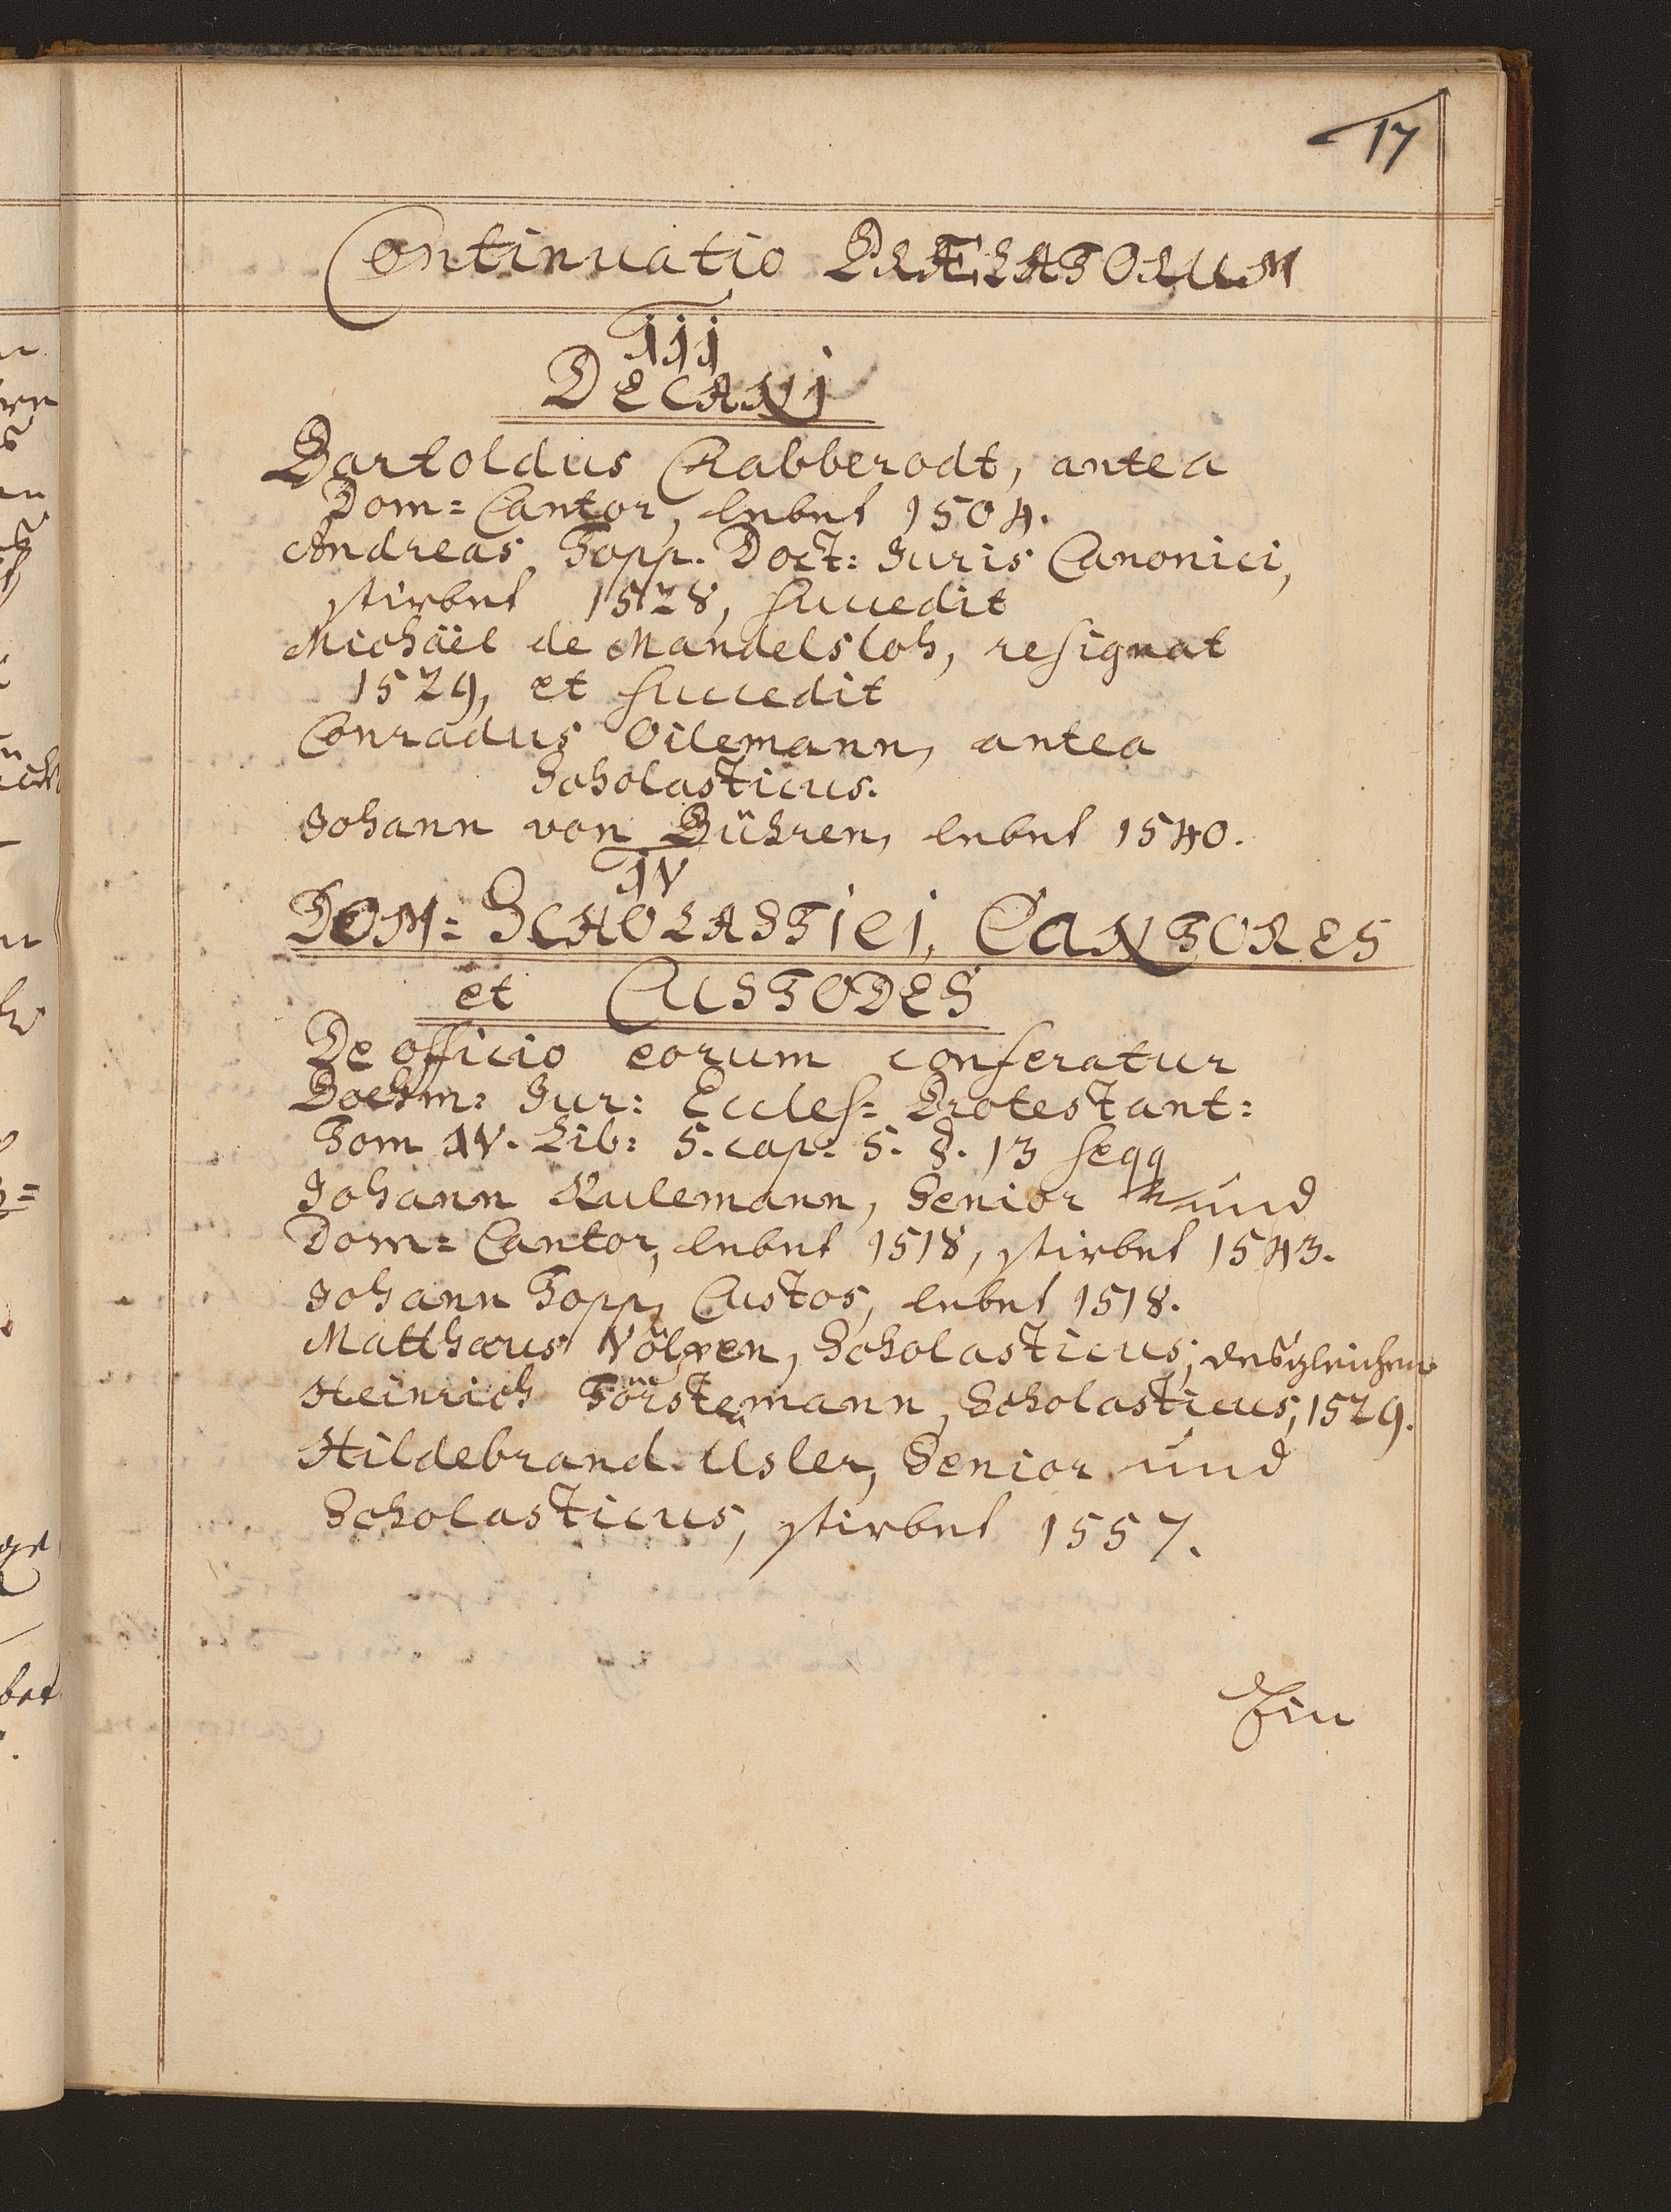 17
Continuatio PRÆLATORUM
III
DECANI
Bartoldus Rabberodt, antea
Dom= Cantor, lebet 1504.
Andreas Topp. Doct: Juris Canonici,
stirbet 1528, succedit
Michäel de Mandelsloh, resignat
1529, et succedit
Conradus Oilemann, antea
Scholasticus.
Johann von Bühren, lebet 1540.
IV
DOM= SCHOLASTICI, CANTORES
et CUSTODES
De officio eorum conferatur
Boehm: Jur: Eccles= Protestant:
Tom IV. Lib: 5. cap. 5. §. 13 seqq
Johann Kulemann, Senior und
Dom= Cantor, lebet 1518, stirbet 1543.
Johann Topp, Custos, lebet 1518.
Matthæus Völxen, Scholasticus, desgleichen
Heinrich Förstemann, Scholasticus, 1529.
Hildebrand Usler, Senior und
Scholasticus, stirbet 1557.
Ein